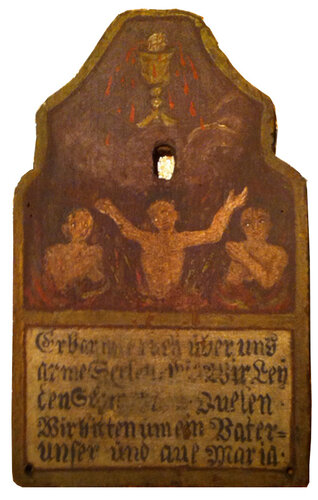 Erbarmt euch über uns
arme Seelen Wir Ley
den Quelen
Wir bitten um ein Vater-
unser und aue Maria.